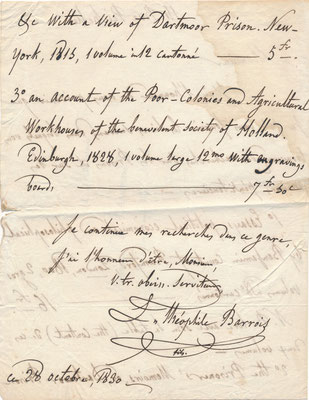 &c With a view of Dartmoor Prison. New-
York, 1815, 1 volume in 12 cartonné — 5 fr.
3° an account of the Poor-Colonies and Agricultural
Workhouses of the benevolent society of Holland.
Edinburgh, 1828, 1 volume large 12mo With engravings
boards — 7 fr 50 c
Je continue mes recherches dans ce genre,
J'ai l'honneur d'être, Monsieur,
V. tr. obéiss. Serviteur,
Théophile Barrois
fils.
ce 28 octobre, 1830